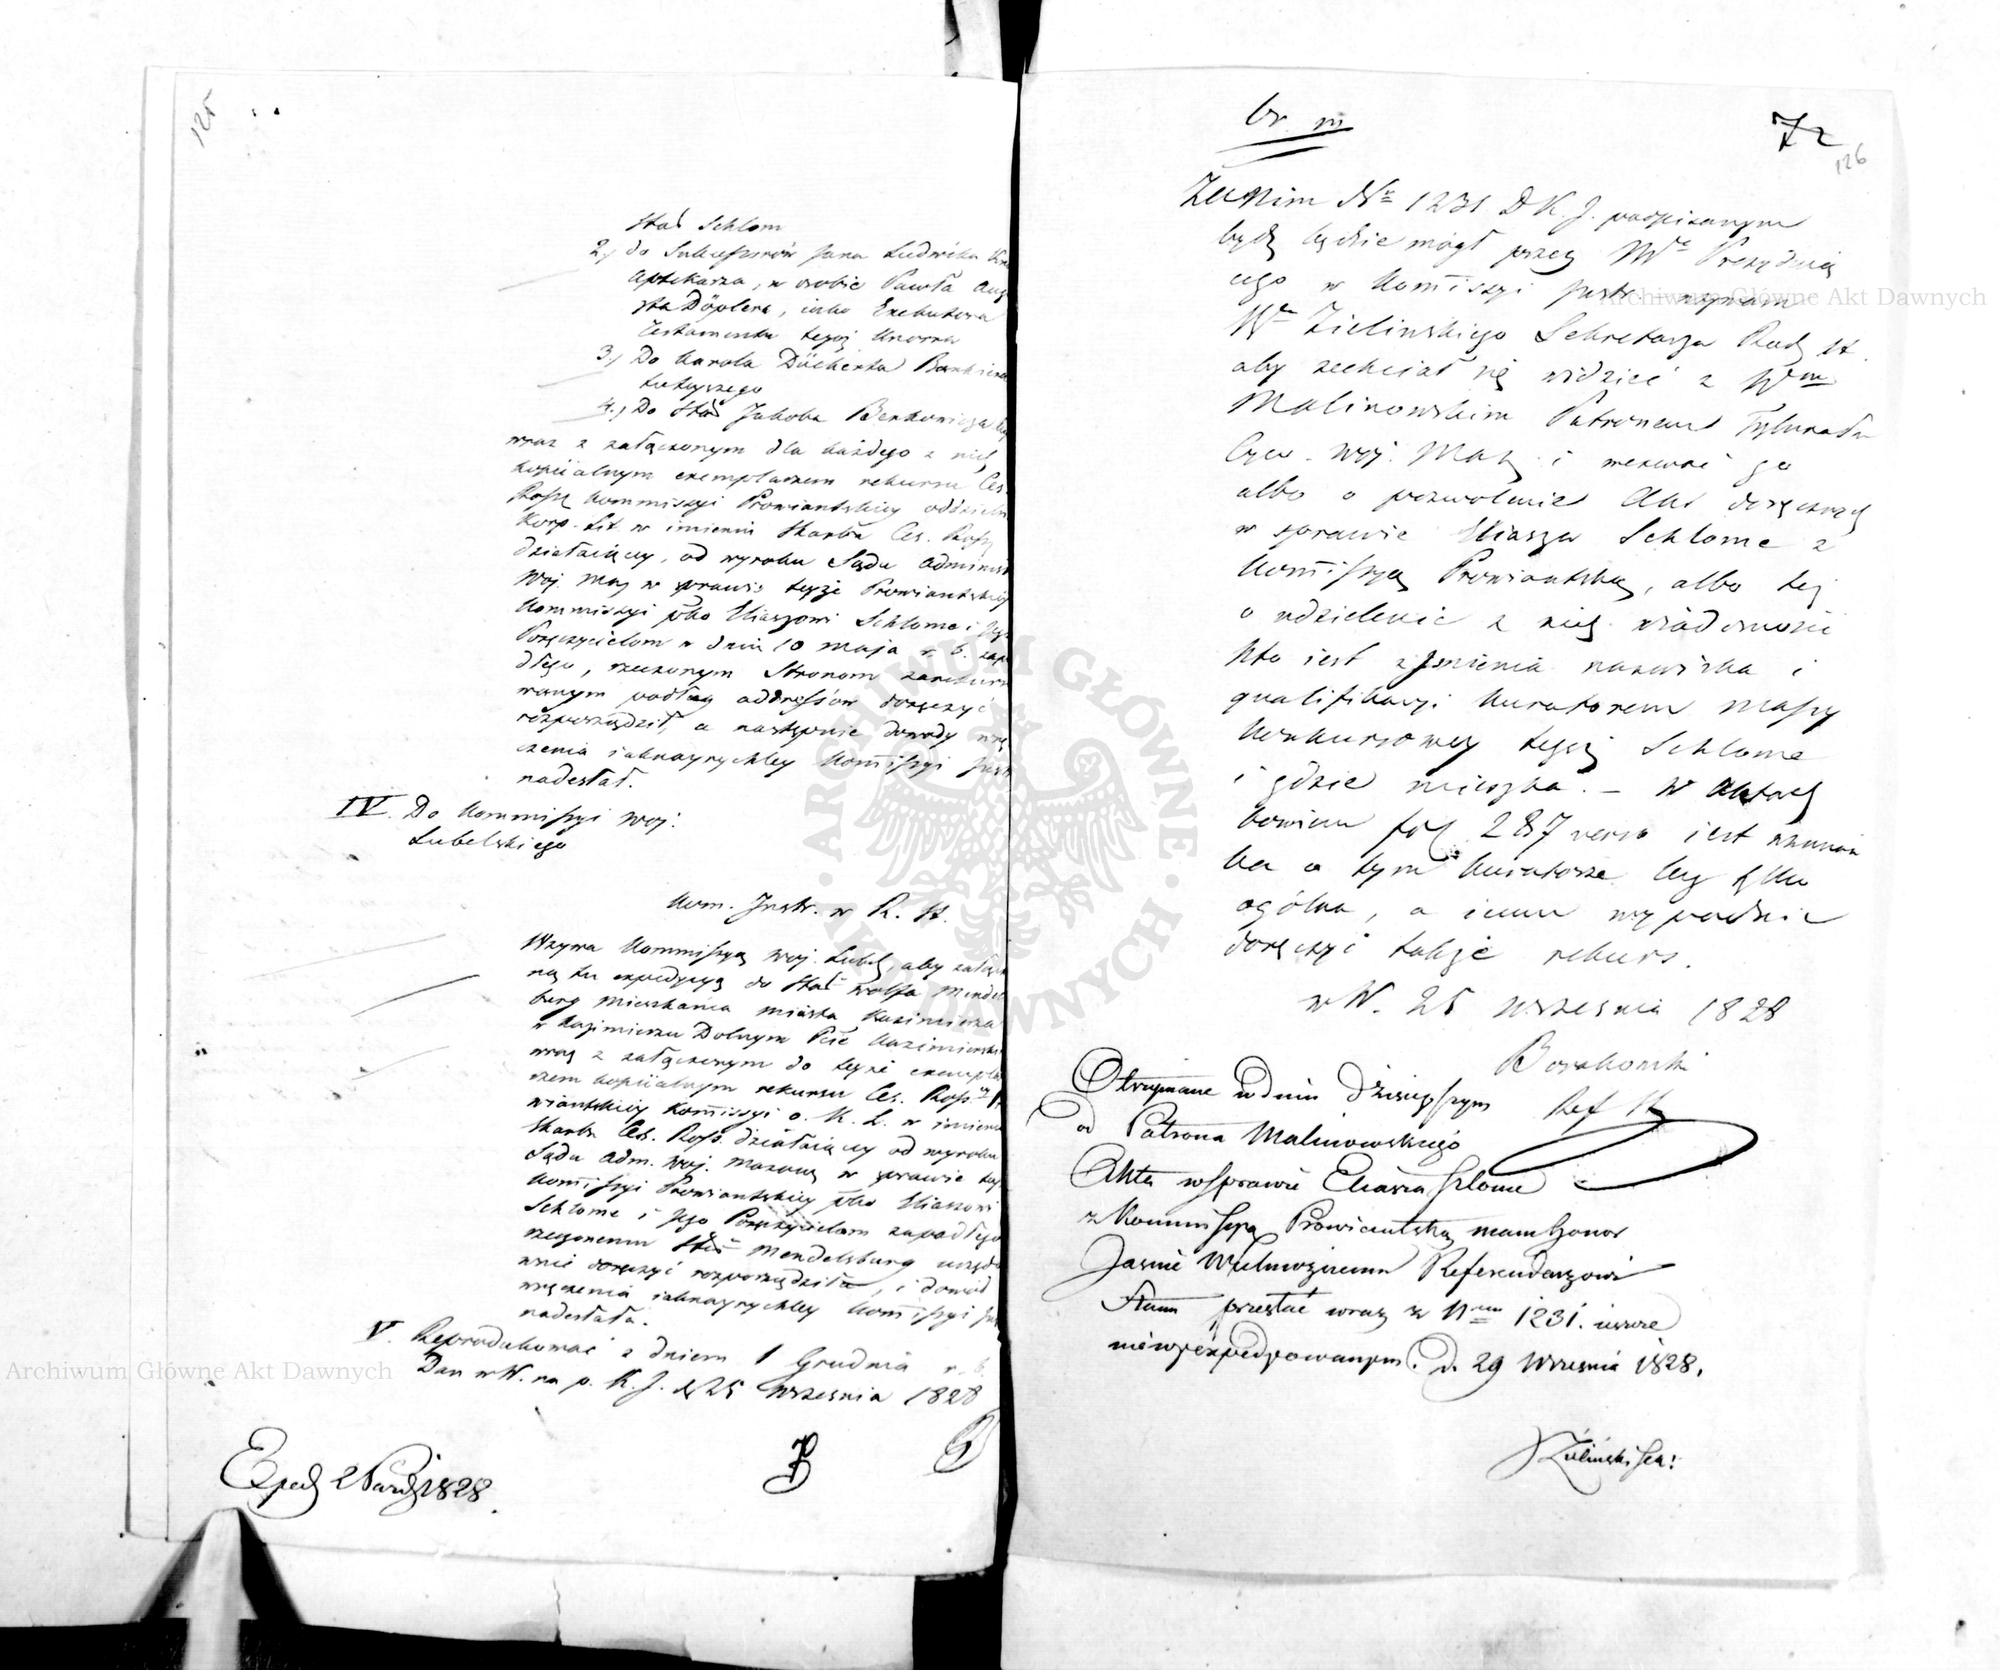 125
Stas Schlom
2.) do Sukcessorów Jana Ludwika
Aptekarza, w osobie Pawła Aug
sta Döplera, iako Exekutora
Testamentu tegoż Knorra
3.) Do Karola Dückerta Bankiera
tutejszego
4.) Do Stas Jakoba Benkowicza
wraz z załączonym dla każdego z nich
kopiialnym exemplarzem rekursu Ces.
Rossy Kommissyi Prowiantskiey oddzieln
Korp. Lit w imieniu Skarbu Ces. Rossy
działaiącey, od wyroku Sądu Administ
Woj. Maz w sprawie teyże Prowiantskiey
Kommissyi pko Eliaszowi Schlome i Jego
Poręczycielom w dniu 10 maja r. b. zapa
dłego, rzeczonym Stronom zarekurs
wanym podług addressów doręczyć
rozporządził, a następnie dowody wrę
czenia iaknayrychley Kommissyi Just
nadesłał.
IV. Do Kommissyi Woj:
Lubelskiego
Kom. Instr. w R. St.
Wzywa Kommissyą Woj. Lubel, aby załącz
ną tu expedycyą do Stas Wolfa Mendel
burg mieszkańca miasta Kazimierza
w Kazimierzu Dolnym Pcie Kazimiersk
wraz z załączonym do teyże exempla
rzem kopiialnym rekursu Ces. Ross. Pr
wiantskiey Kommissyi o. K. L. w imieniu
Skarbu Ces. Ross. działaiącey od wyroku
Sądu Adm. Woj. Mazow w sprawie tey
Kommissyi Prowiantskiey pko Eliaszowi
Schlome i Jego Poręczycielom zapadłego
rzeczonemu Stas Mendelsburg urzędo
wnie doręczyć rozporządziła, i dowód
wręczenia iaknayrychley Kommissyi Jus
nadesłała.
V. Reprodukować z dniem 1 Grudnia r. b.
Dan w W. na p. K. J. d 25 Września 1828
Exped 2 Paźdź 1828.
br. m
72
126
Zanim Nr 1231 D K. J. podpisanym
będzie mógł przez Prezyduią
cego w Kommissyi Instr. wzywam
Wgo Zielińskiego Sekretarza Rady St.
aby zechciał się widzieć z Wm
Malinowskim Patronem Trybunału
Cyw. Woj. Maz i wezwać go
albo o pozwolenie Akt doręczeń
w sprawie Eliasza Schlome z
Kommissyą Prowiantską, albo też
o udzielenie z nich wiadomości
kto iest z imienia nazwiska i
qualifikacyi Kuratorem massy
konkursowey tegoż Schlome
i gdzie mieszka. – W Aktach
bowiem fol 287 verso iest wzmian
ka o tym Kuratorze lecz tylko
ogólna, a iemu wypadnie
doręczyć także rekurs.
w W. 25 Września 1828
Borakowski
Ref St
Otrzymane w dniu dzisieyszym
od Patrona Malinowskiego
Akta w sprawie Eliasza Szlome
z Kommissyą Prowiantską mam honor
Jaśnie Wielmożnemu Referendarzowi
Stanu przesłać wraz z Nrem 1231. ieszcze
niewyexpedyowanym. d. 29 Września 1828.
Zieliński Sek:
Archiwum Główne Akt Dawnych
Archiwum Główne Akt Dawnych
ARCHIWUM GŁÓWNE AKT DAWNYCH